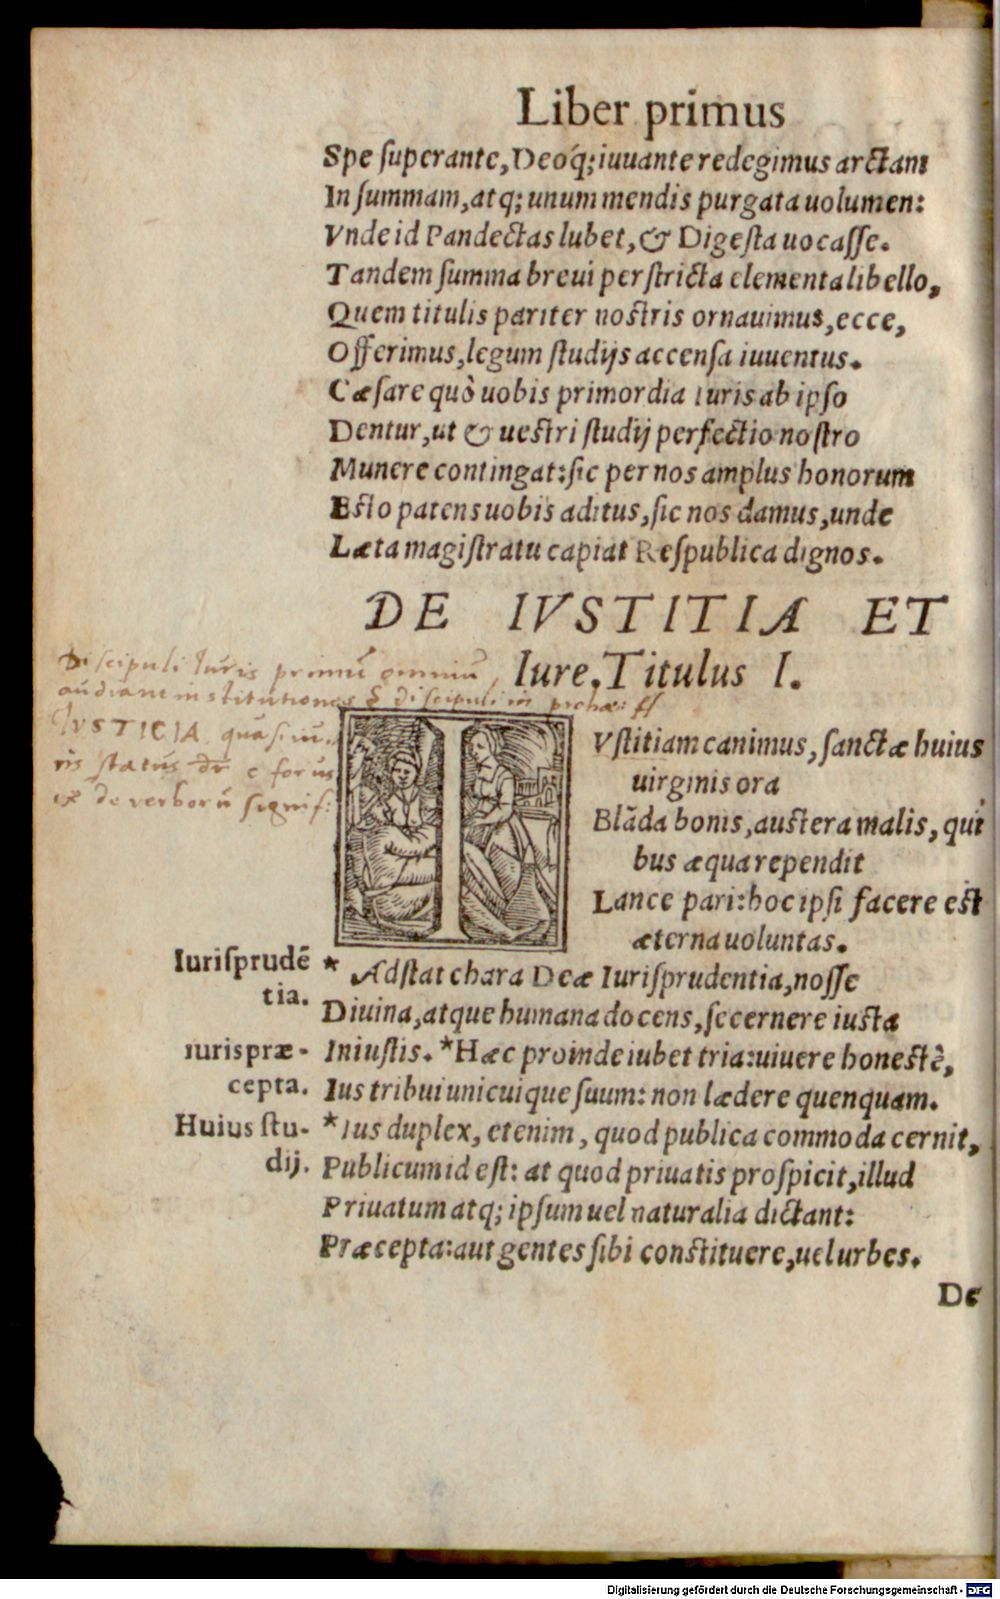 Liber primus
Spe superante, Deoq́; iuuante redegimus arctam
In summam, atq; unum mendis purgata uolumen:
Vnde id Pandectas lubet, & Digesta uocasse.
Tandem summa breui perstricta elementa libello,
Quem titulis pariter nostris ornauimus, ecce,
Offerimus, legum studijs accensa iuuentus.
Cæsare quò uobis primordia Iuris ab ipso
Dentur, ut & uestri studij perfectio nostro
Munere contingat: sic per nos amplus honorum
Esto patens uobis aditus, sic nos damus, unde
Læta magistratu capiat Respublica dignos.
DE IVSTITIA ET
Iure. Titulus I.
Discipuli Iuris primū omniū,
audiant institutiones & discipuli in prohœ: ff
IVSTICIA quasi iu-
ris status dr̄ c forus
ex de verborū signif:
IVstitiam canimus, sanctæ huius
uirginis ora
Blãda bonis, austera malis, qui
bus æqua rependit
Lance pari: hoc ipsi facere est
æterna uoluntas.
Iurisprudẽ * Adstat chara Deæ Iurisprudentia, nosse
tia. Diuina, atque humana docens, secernere iusta
Iurispræ- Iniustis. *Hæc proinde iubet tria: uiuere honestè,
cepta. Ius tribui unicuique suum: non lædere quenquam.
Huius stu- *Ius duplex, etenim, quod publica commoda cernit,
dij. Publicum id est: at quod priuatis prospicit, illud
Priuatum atq; ipsum uel naturalia dictant:
Præcepta: aut gentes sibi constituere, uel urbes.
De
Digitalisierung gefördert durch die Deutsche Forschungsgemeinschaft - DFG